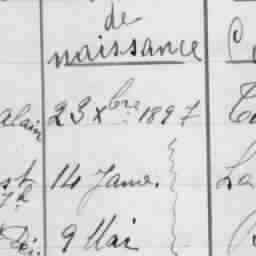 de
naissance
alain 23 xbre 1897
14 Janv.
9 Mai